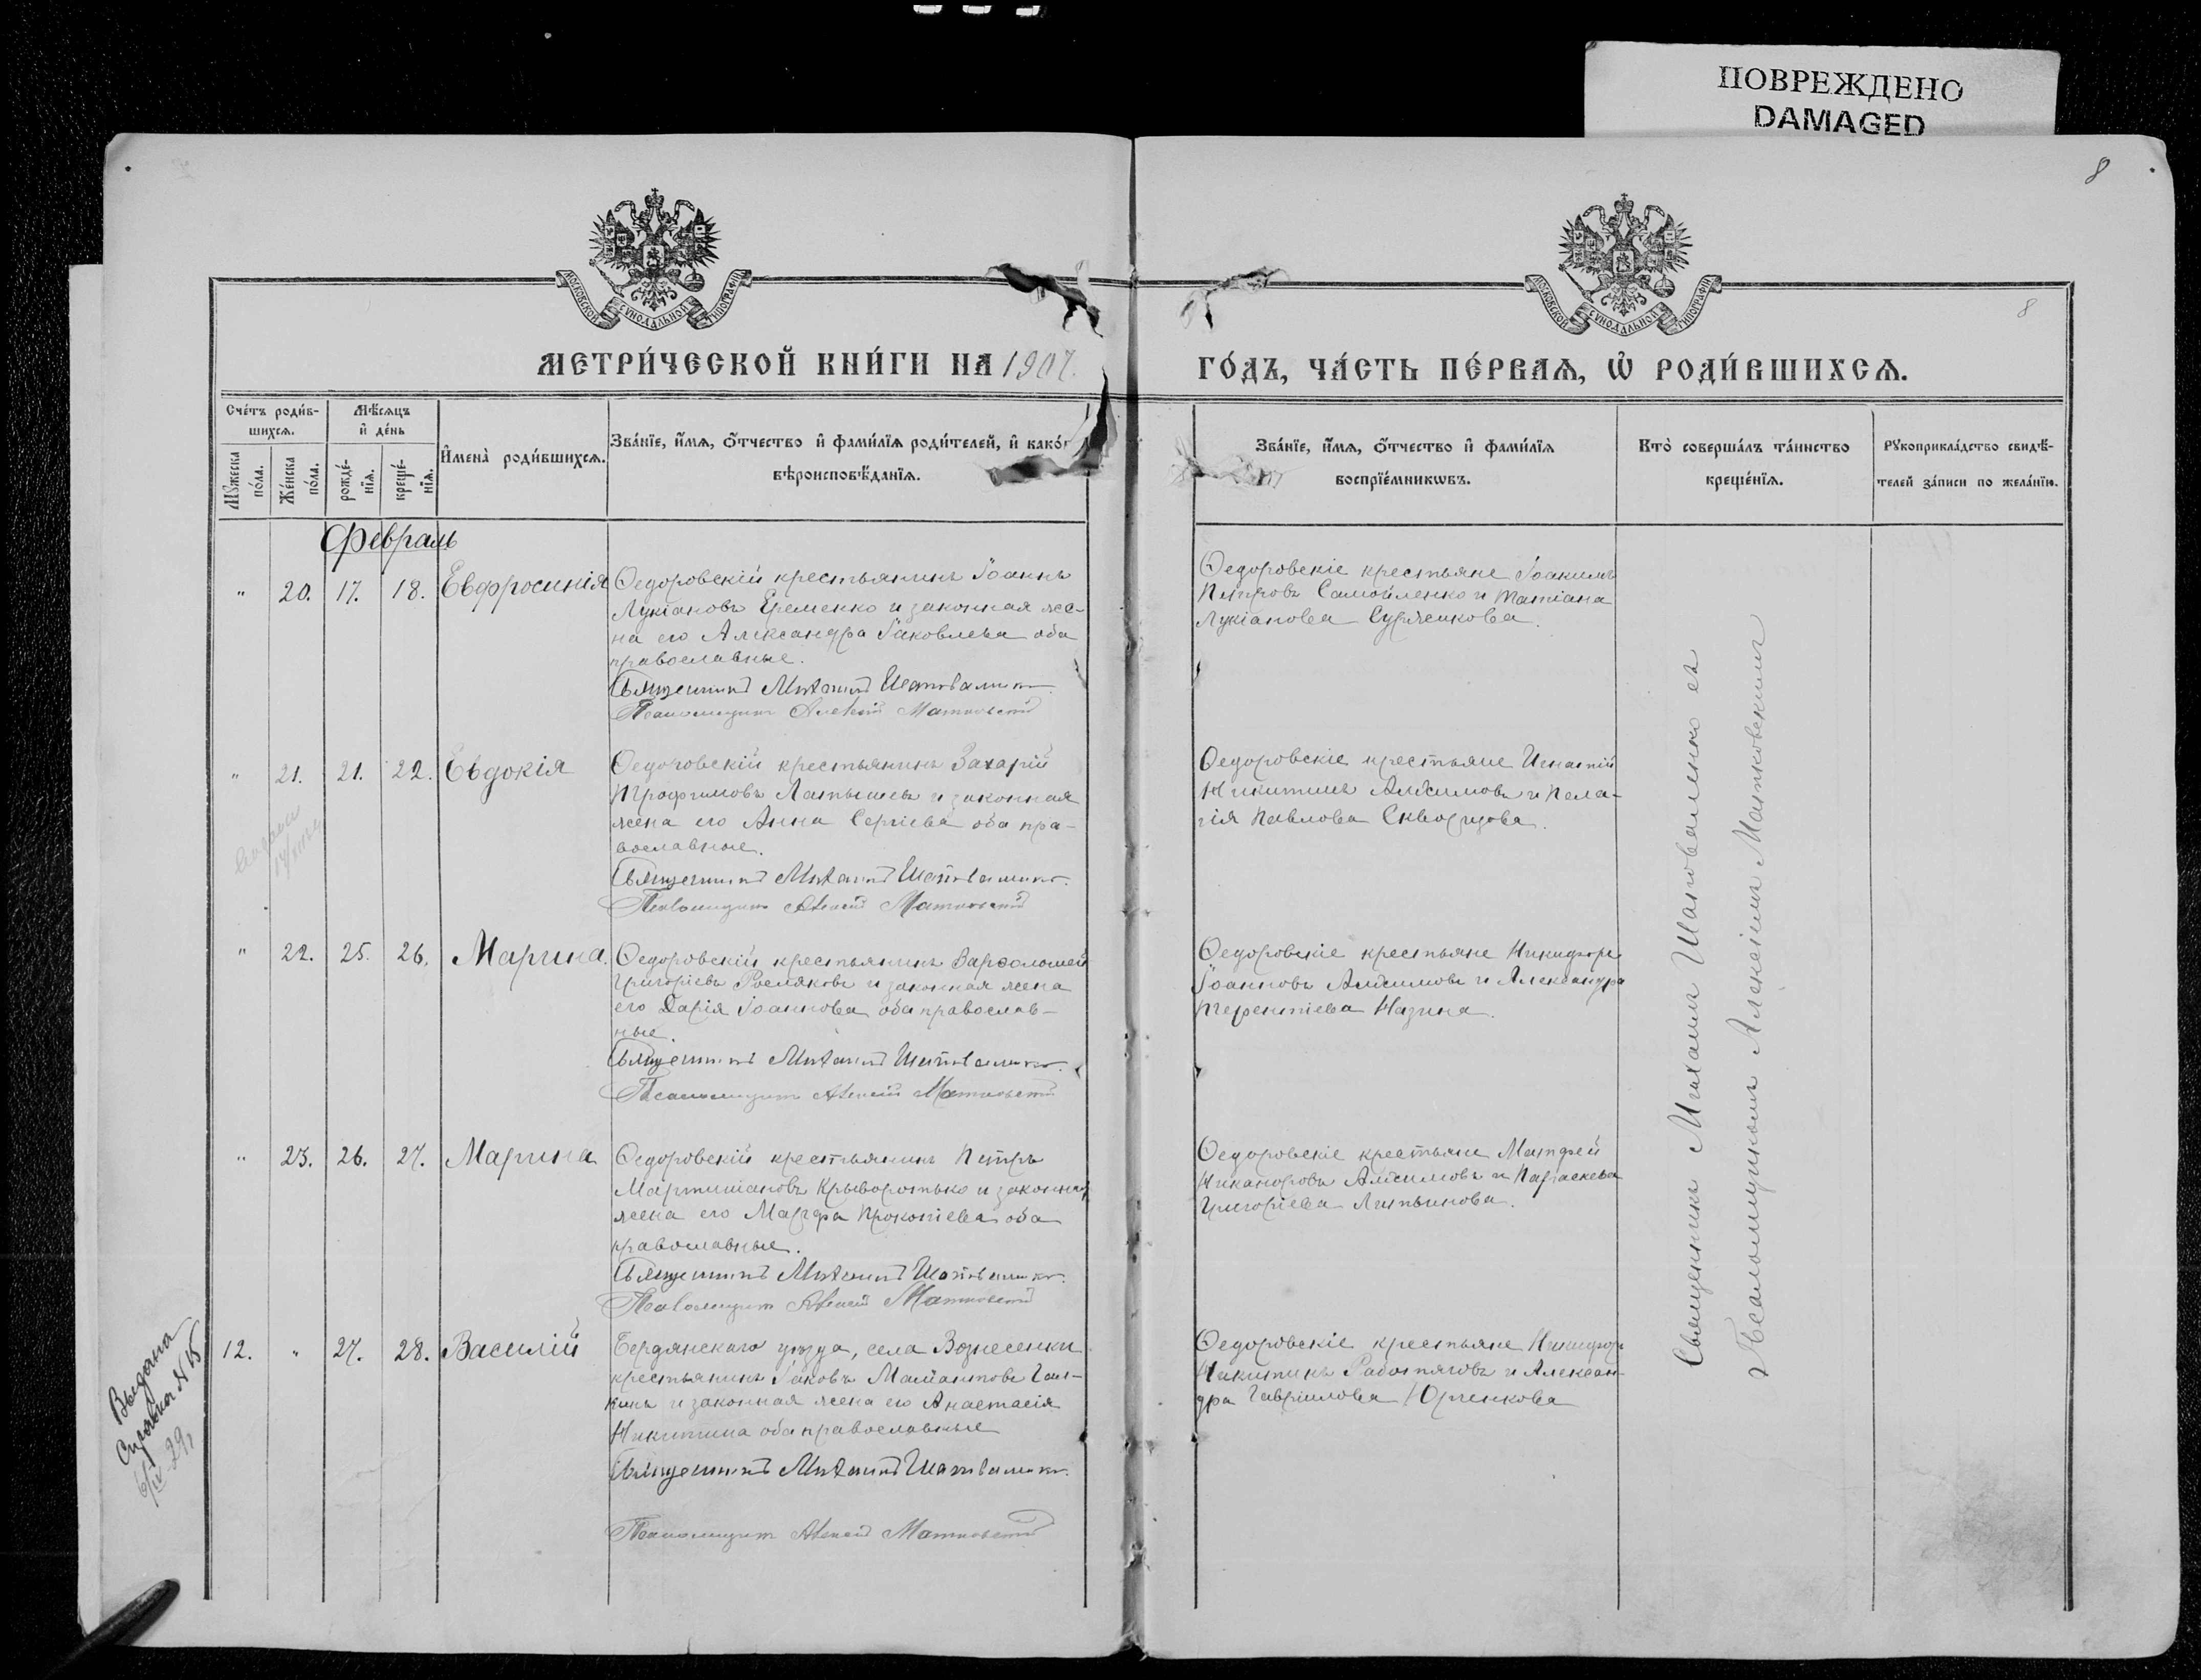 ПОВРЕЖДЕНО
DAMAGED
8
8
МОСКОВСКОЙ СѴНОДАЛЬНОЙ ТИПОГРАФІИ
МОСКОВСКОЙ СѴНОДАЛЬНОЙ ТИПОГРАФІИ
МЕТРИ́ЧЕСКОЙ КНИ́ГИ НА 1907.
ГО́ДЪ, ЧА́СТЬ ПЕ́РВАѦ, Ѡ҆ РОДИ́ВШИХСѦ.
Сче́тъ роди́в-
шихсѧ.
Мѣ́сѧцъ
и҆ де́нь
Мꙋ́жеска
по́ла.
Же́нска
по́ла.
рожде́-
нїѧ.
креще́-
нїѧ.
И҆мена̀ роди́вшихсѧ.
Зва́нїе, и҆́мѧ, ѻ҆́тчество и҆ фами́лїѧ роди́телей, и҆ како́г
вѣроисповѣ́данїѧ.
Зва́нїе, и҆́мѧ, ѻ҆́тчество и҆ фами́лїѧ
воспрїе́мникѡвъ.
Кто̀ соверша́лъ та́инство
креще́нїѧ.
Рꙋкоприкла́дство свидѣ́-
телей за́писи по жела́нїю.
Февраль
" 20. 17. 18. Евфросинія
Ѳедоровскій крестьянинъ Іоаннъ
Лукіановъ Еременко и законная же-
на его Александра Іаковлева оба
православные.
Священникъ Михаилъ Шаповаленко
Псаломщикъ Алексій Матковскій
Ѳедоровскіе крестьяне Іоакимъ
Петровъ Самойленко и Татіана
Лукіанова
" 21. 21. 22. Евдокія
Ѳедоровскій крестьянинъ Захарій
Трофимовъ Латышевъ и законная
жена его Анна Сергіева оба пра-
вославные.
Священникъ Михаилъ Шаповаленко.
Псаломщикъ Алексій Матковскій
Ѳедоровскіе крестьяне Игнатій
Никитинъ Анисимовъ и Пела-
гія Павлова Скворцова.
" 22. 25. 26. Марина.
Ѳедоровскій крестьянинъ Варѳоломей
Григоріевъ Росляковъ и законная жена
его Дарія Іоаннова оба православ-
ные.
Священникъ Михаилъ Шаповаленко.
Псаломщикъ Алексій Матковскій
Ѳедоровскіе крестьяне Никифоръ
Іоанновъ Анисимовъ и Александра
Терентіева Назина.
" 23. 26. 27. Марина
Ѳедоровскій крестьянинъ Петръ
Мартиніановъ Крыворотько и законная
жена его Марфа Прокопіева оба
православные.
Священникъ Михаилъ Шаповаленко.
Псаломщикъ Алексій Матковскій
Ѳедоровскіе крестьяне Матфей
Никаноровъ Анисимовъ и Параскева
Григоріева Литвинова.
12. " 27. 28. Василій
Бердянскаго уѣзда, села Вознесенки
крестьянинъ Іаковъ
и законная жена его Анастасія
Никитина оба православные
Священникъ Михаилъ Шаповаленко.
Псаломщикъ Алексій Матковскій
Ѳедоровскіе крестьяне Никифоръ
Никитинъ Работяговъ и Алексан-
дра Гавріилова Юрченкова
Священникъ Михаилъ Шаповаленко съ
Псаломщикомъ Алексіемъ Матковскимъ
Выдана
Справка N 15
6/IV 29 г